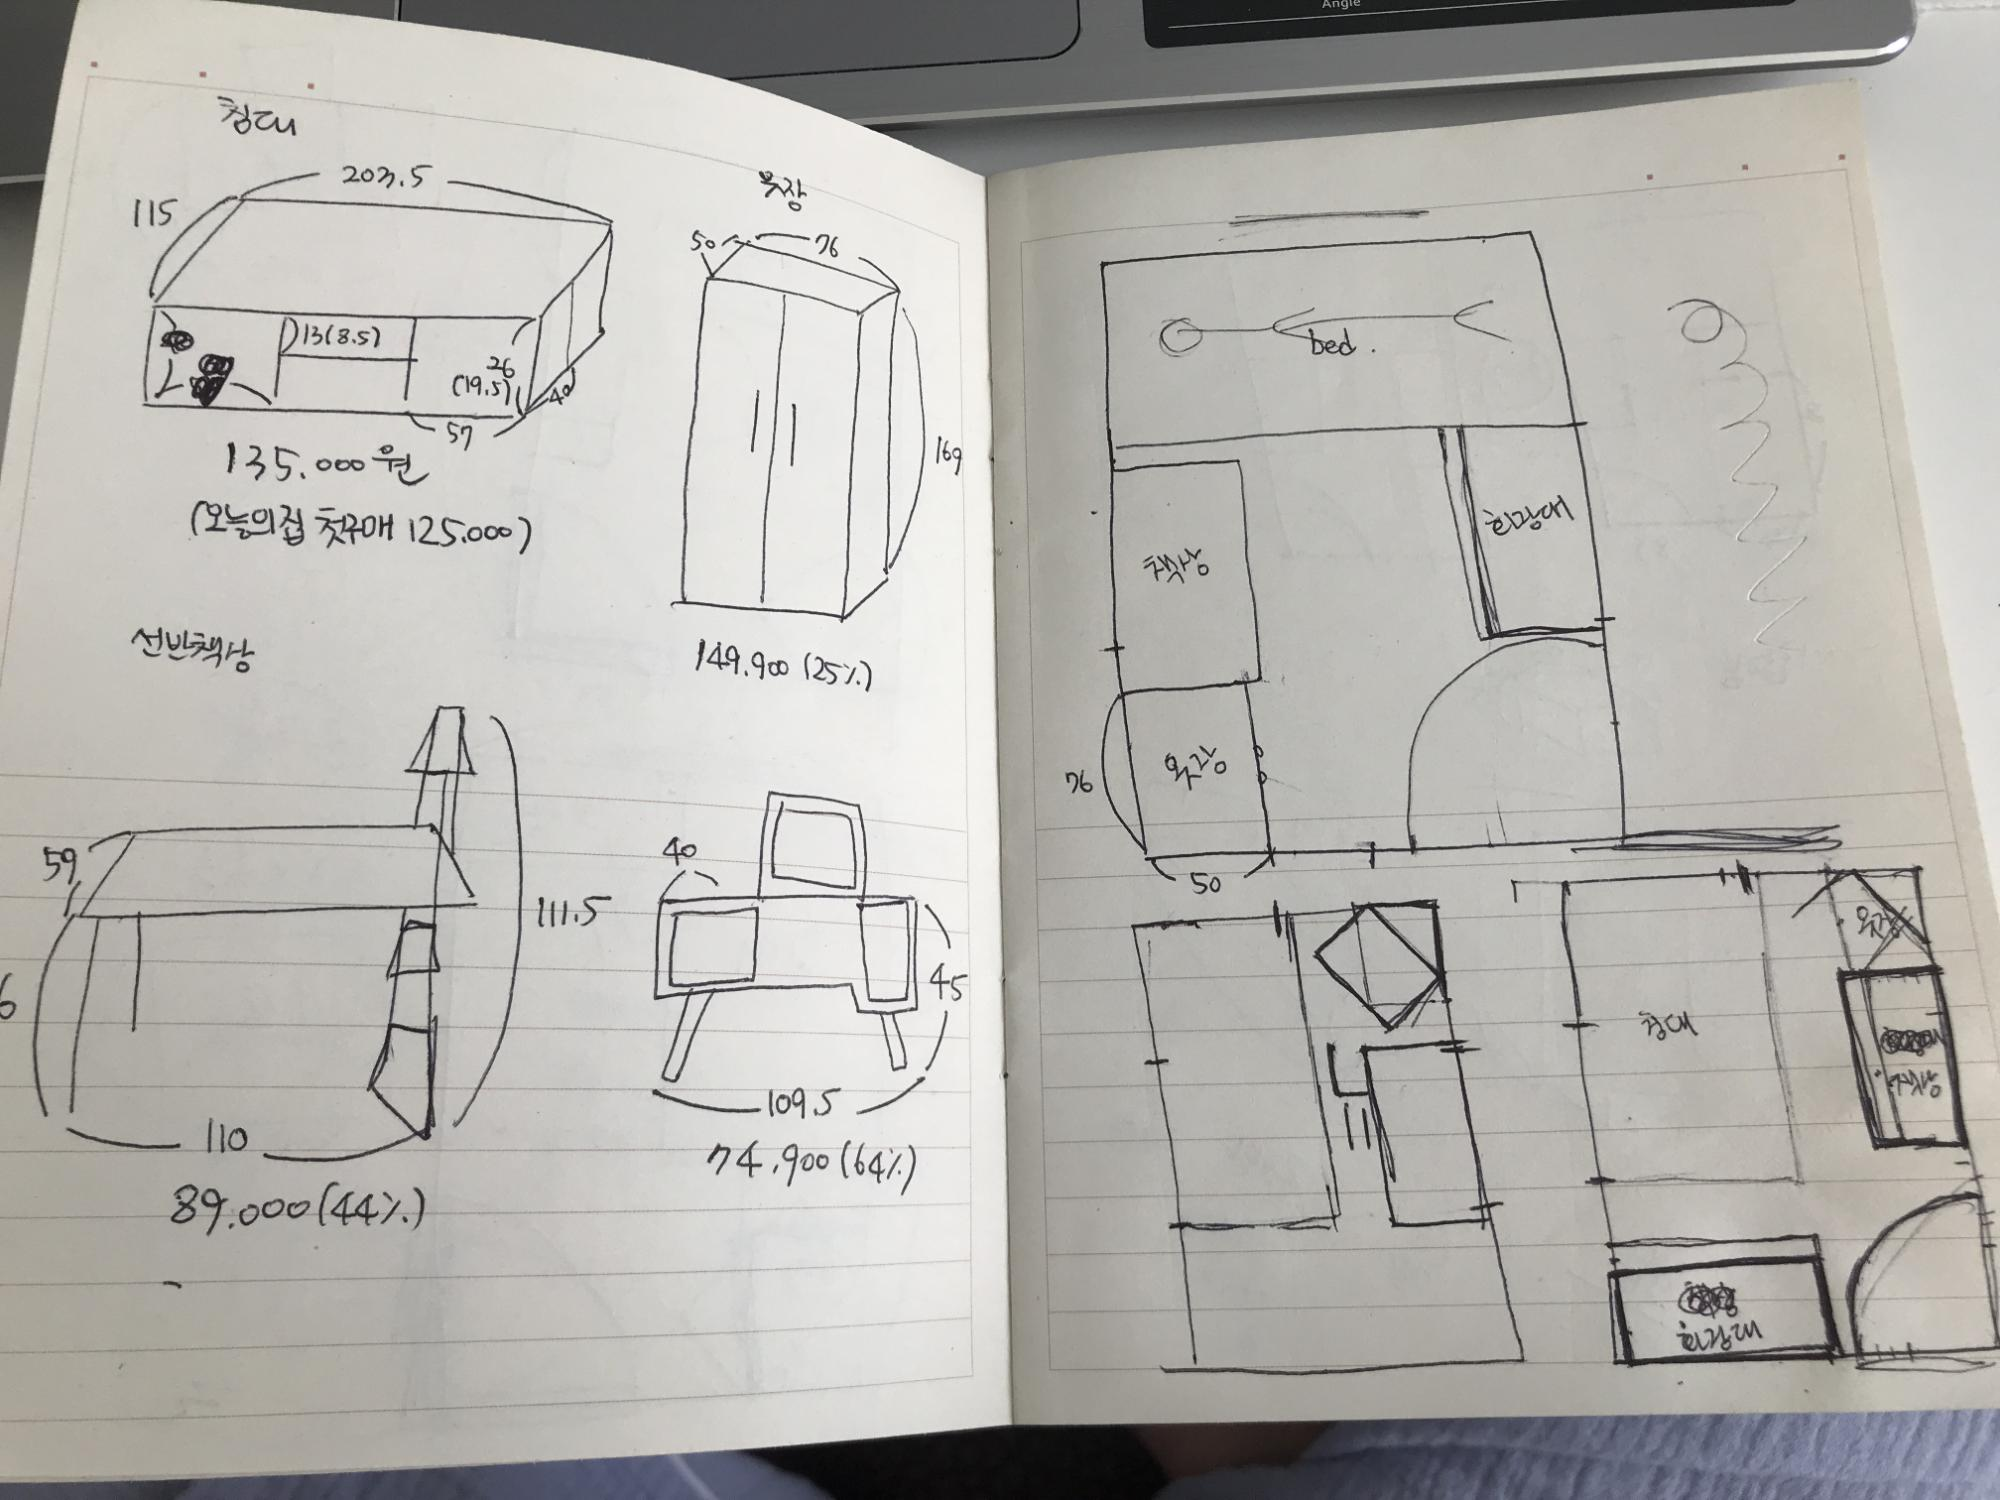 Angle
침대
203.5
115
13(8.5)
26
(19.5)
40
57
135.000원
(오늘의집 첫구매 125.000)
옷장
50
76
169
149.900 (25%)
선반책상
59
111.5
6
110
89.000 (44%)
40
45
109.5
74.900 (64%)
bed.
화장대
책상
옷장
76
50
옷장
침대
책상
화장대